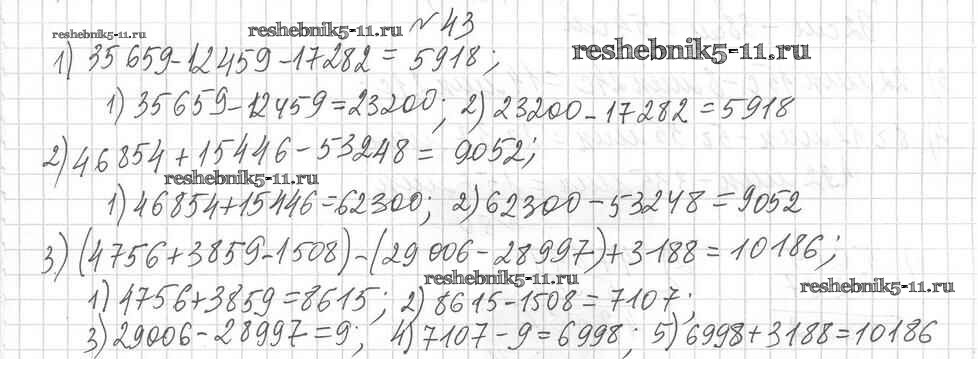 reshebnik5-11.ru
reshebnik5-11.ru
№ 43
reshebnik5-11.ru
1) 35 659-12459-17282 = 5918;
1) 35659-12459=23200; 2) 23200-17282=5918
2) 46854+15446-53248= 9052;
reshebnik5-11.ru
1) 46854+15446=62300; 2) 62300-53248=9052
3) (4756+3859-1508)-(29006-28997)+3188=10186;
reshebnik5-11.ru
reshebnik5-11.ru
1) 4756+3859=8615; 2) 8615-1508=7107;
3) 29006-28997=9; 4) 7107-9=6998; 5) 6998+3188=10186